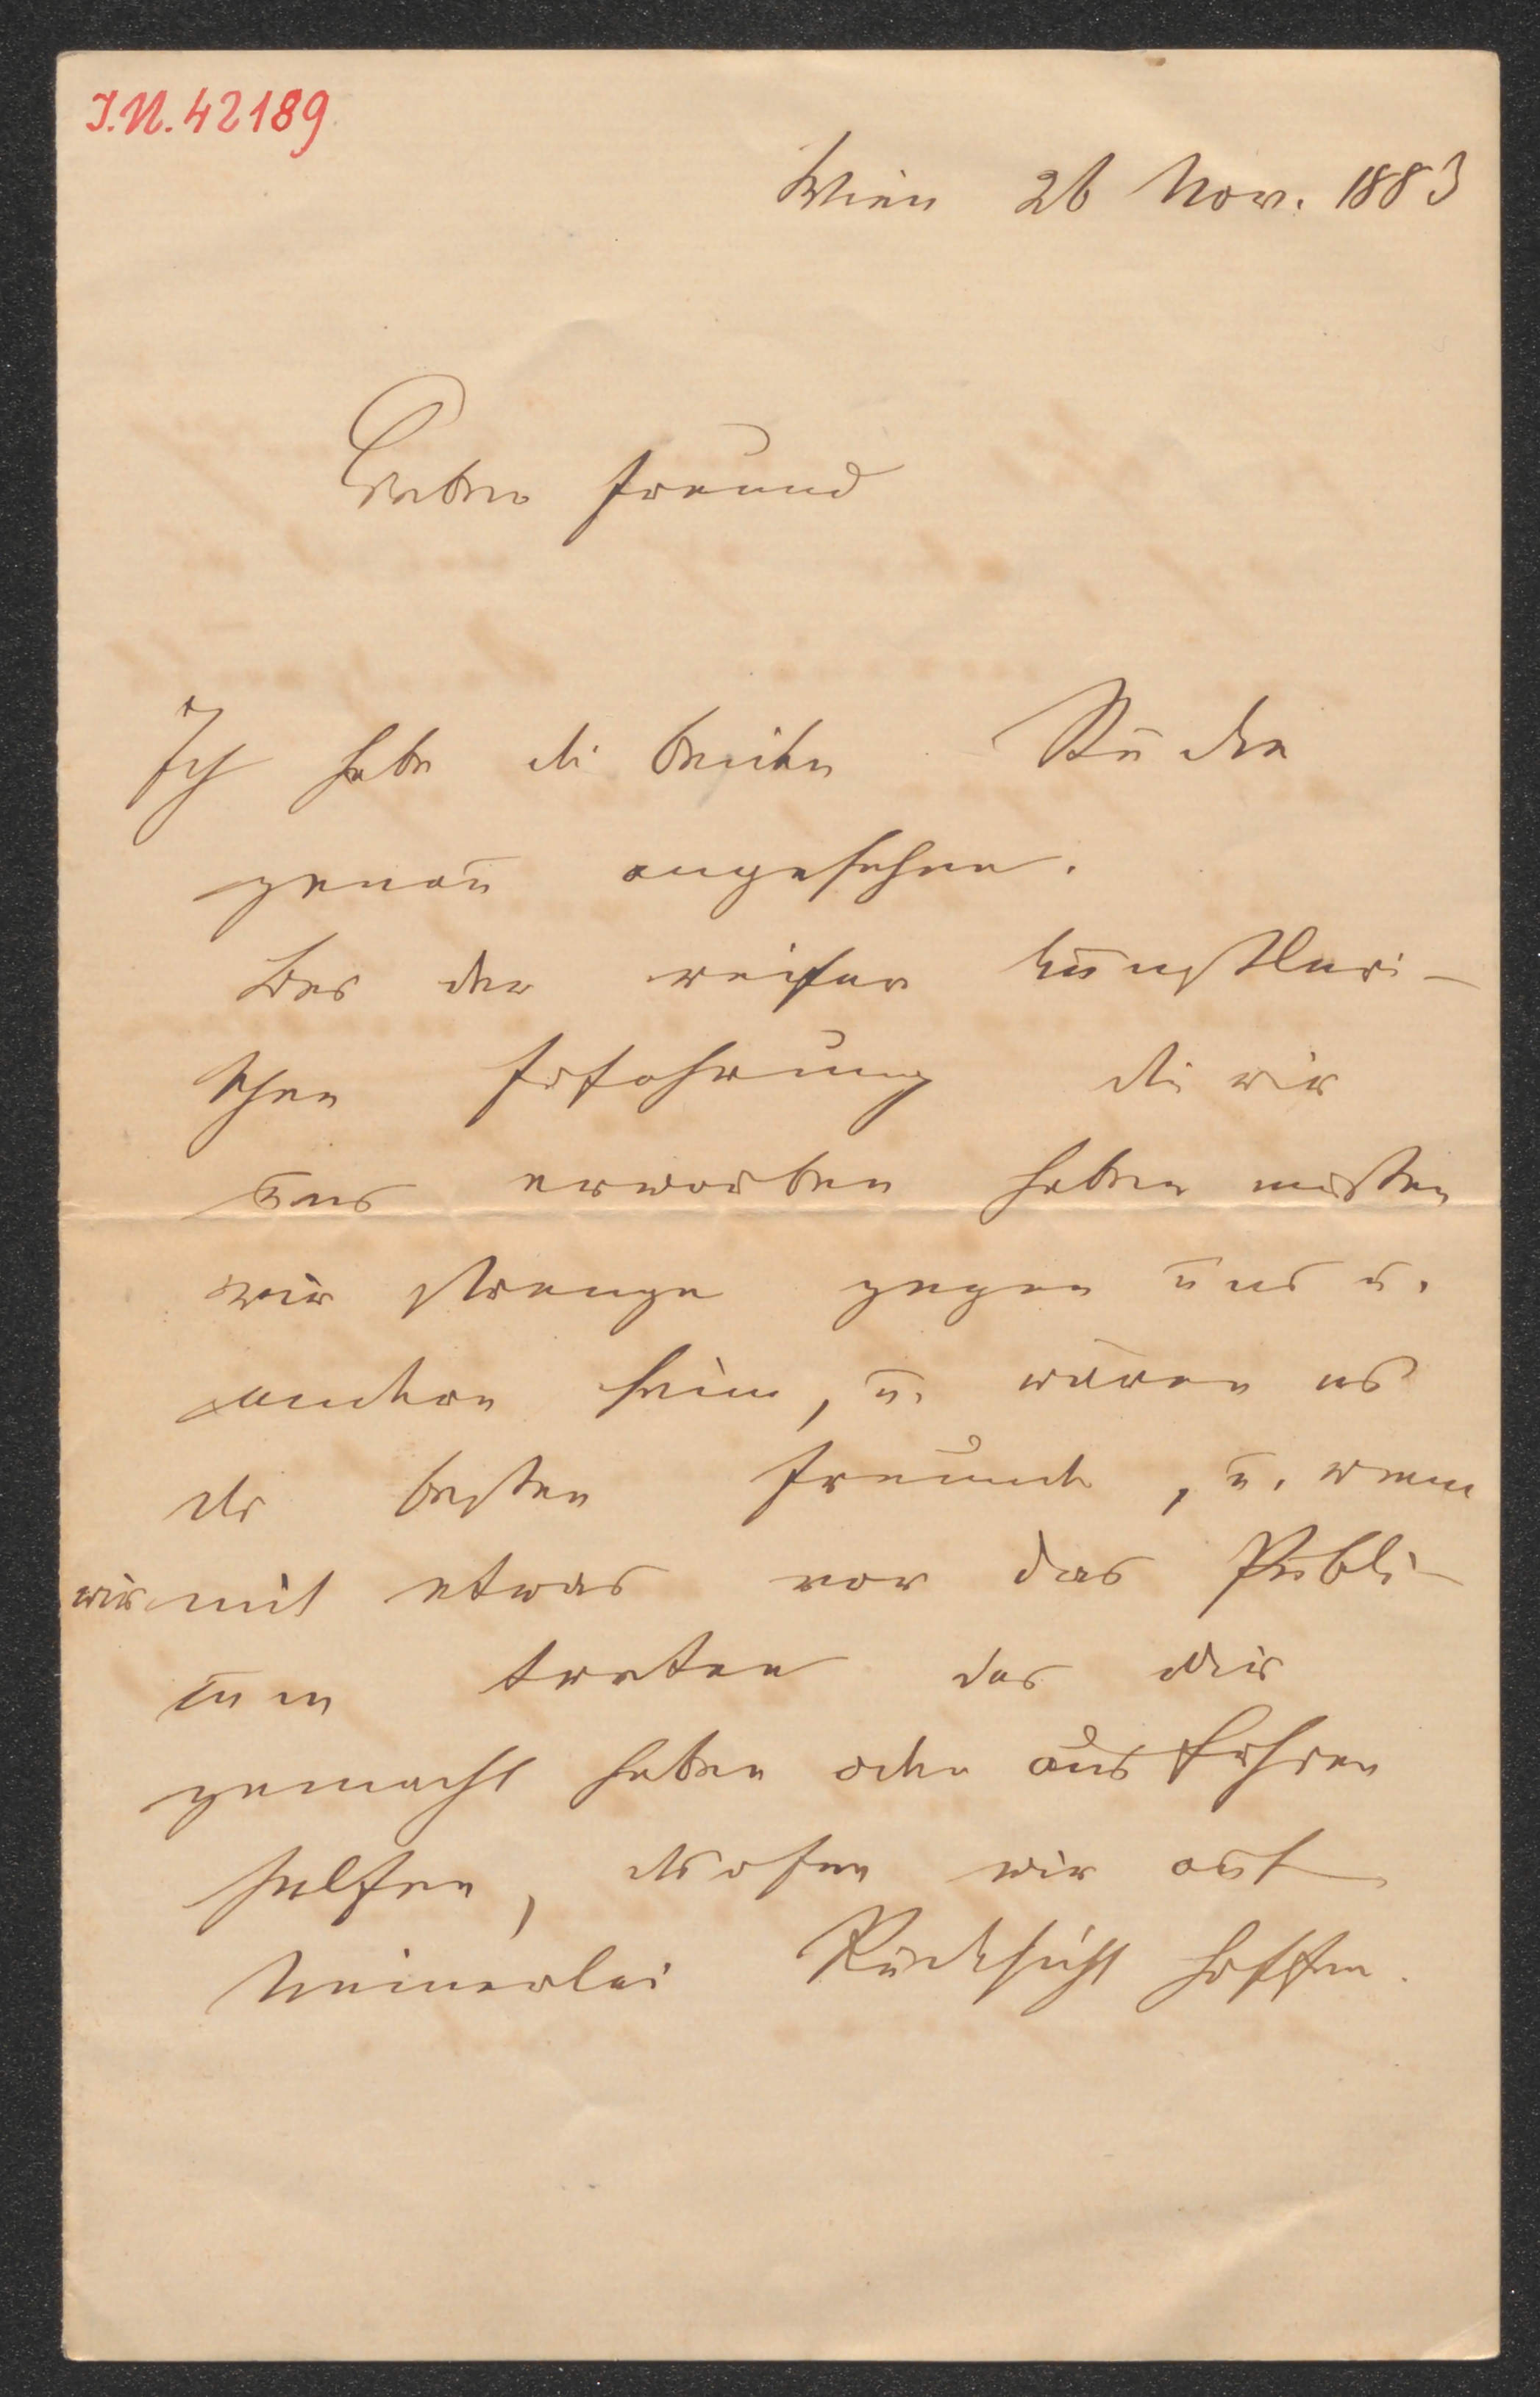 I.N. 42189
Wien 26 Nov. 1883
Lieber Freund
Ich habe die beiden
genau angesehen.
Bei der reifen künstleri-
schen Erfahrung die wir
uns erworben haben müssen
wir strenge gegen uns u.
andere sein, u. wären es
die besten Freunde, u. wenn
wir mit etwas vor das Publi-
um treten das wir
gemacht haben oder ausführen
helfen, dürfen wir auf
keinerlei Rücksicht hoffen.